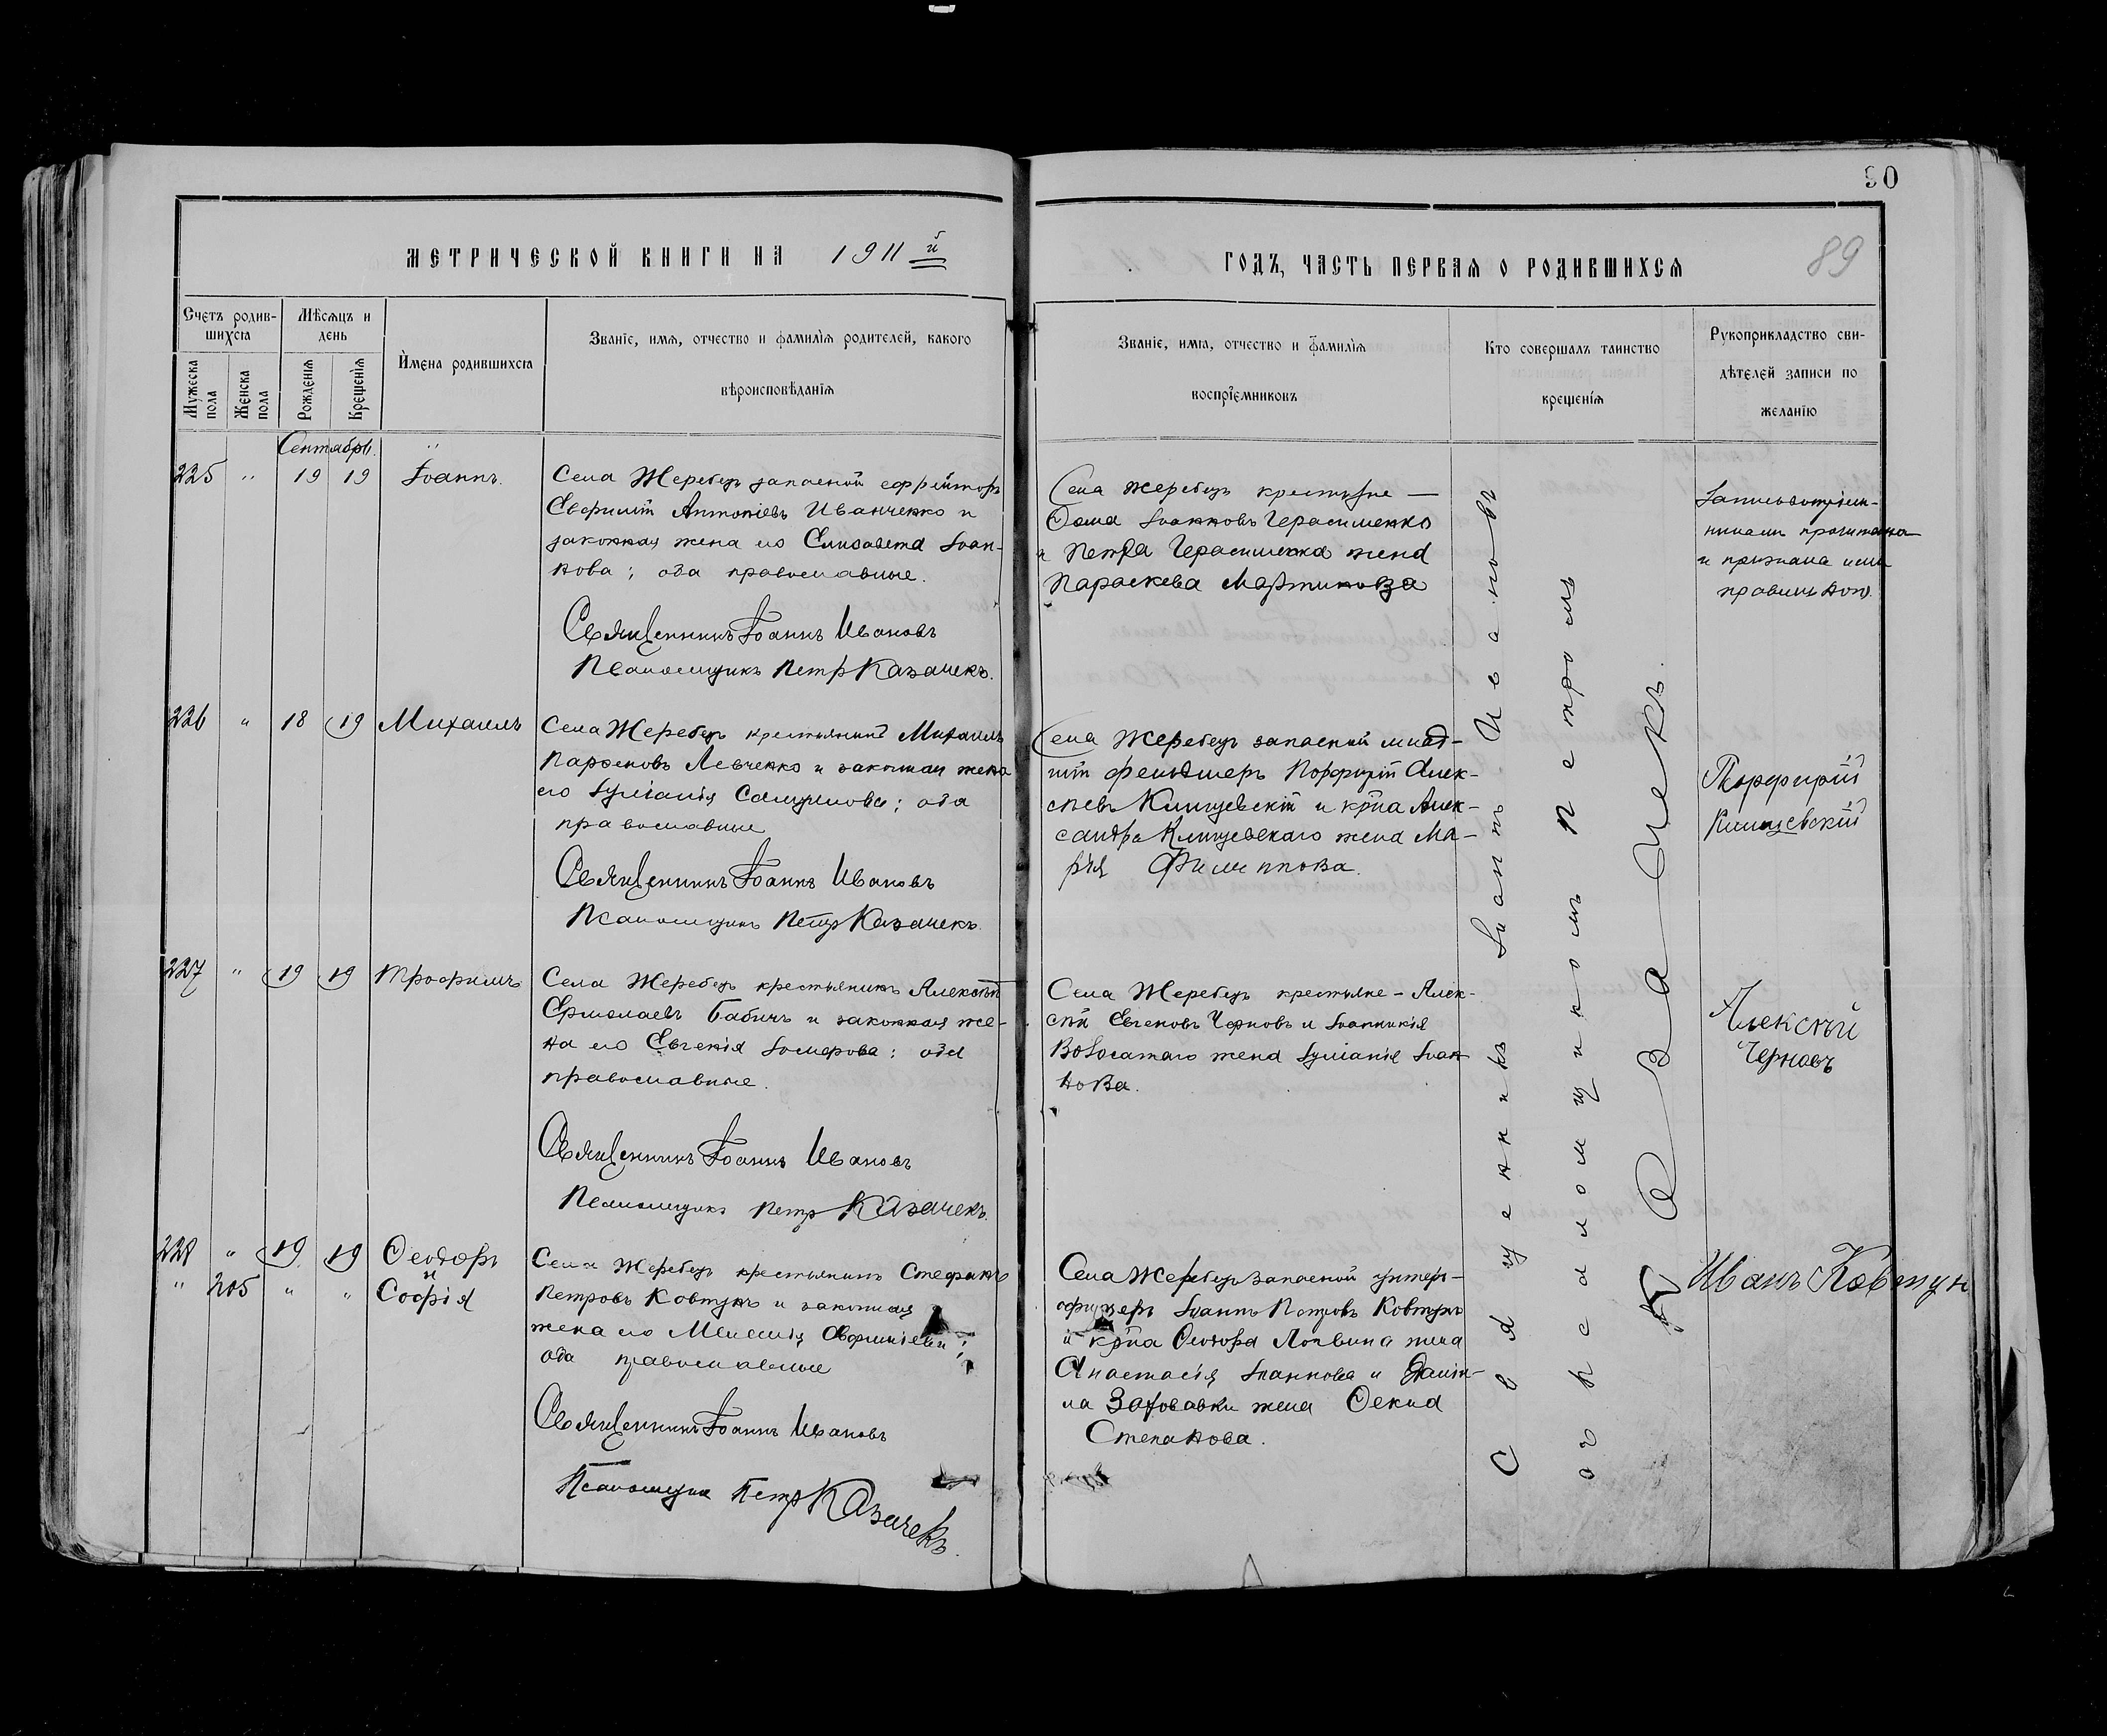 90
89
МЕТРИЧЕСКОЙ КНИГИ НА 1911й
ГОДЪ, ЧАСТЬ ПЕРВАЯ О РОДИВШИХСЯ
Счетъ родив-
шихся
Мужеска пола
Женска пола
Мѣсяцъ и
день
Рожденія
Крещенія
Имена родившихся
Званіе, имя, отчество и фамилія родителей, какого
вѣроисповѣданія
Званіе, имя, отчество и фамилія
воспріемниковъ
Кто совершалъ таинство
крещенія
Рукоприкладство сви-
дѣтелей записи по
желанію
Сентябрь
225 " 19 19 Іоаннъ.
Села Жеребецъ запасной ефрейторъ
Евфимій Антоніевъ Иванченко и
законная жена его Елисавета Іоан-
нова; оба православные.
Священникъ Іоаннъ Ивановъ
Псаломщикъ Петръ Казачекъ.
Села Жеребецъ крестьяне —
Ѳома Іоанновъ Герасименко
и Петра Герасименка жена
Параскева Мартинова
прочитана
и признана
226 " 18 19 Михаилъ
Села Жеребецъ крестьянинъ Михаилъ
Парѳеновъ Левченко и законная жена
его Іуліанія Самуилова; оба
православные
Священникъ Іоаннъ Ивановъ
Псаломщикъ Петръ Казачекъ.
Села Жеребецъ запасной млад-
шій фельдшеръ Порфирій Алек-
сѣевъ Климуевскій и кр-на Алек-
сандра Климуевскаго жена Ма-
рія Филиппова.
Порфирій
227 " 19 19 Трофимъ
Села Жеребецъ крестьянинъ Алексѣй
Ермолаевъ Бабичъ и законная же-
на его Евгенія оба
православные.
Священникъ Іоаннъ Ивановъ
Псаломщикъ Петръ Казачекъ.
Села Жеребецъ крестьяне — Алек-
сѣй Евгеновъ Черновъ и Іоанникія
Волосатаго жена Іуліанія Іоан-
нова.
Алексѣй
Черновъ
228 " 19 19 Ѳеодоръ
и
" 205 " " Софія
Села Жеребецъ крестьянинъ Стефанъ
Петровъ Ковтунъ и законная
жена его
оба православные
Священникъ Іоаннъ Ивановъ
Псаломщикъ Петръ Казачекъ.
Села Жеребецъ запасной унтеръ-
офицеръ Іоаннъ Петровъ Ковтунъ
и кр-на Ѳеодора Логвина жена
Анастасія Іоаннова и Даніи-
ла жена Ѳекла
Степанова.
Иванъ Ковтун
Священникъ Іоаннъ Ивановъ
съ псаломщикомъ Петромъ
Казачекъ.